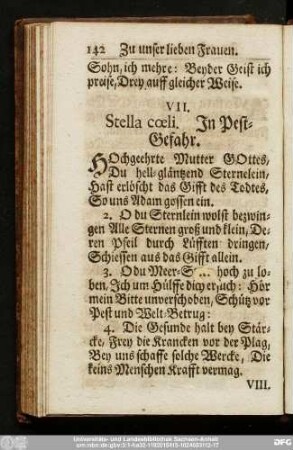 142 Zu unser lieben Frauen.
Sohn, ich mehre: Beyder Geist ich
preise, Drey auff gleicher Weise.
VII.
Stella cœli. In Pest-
Gefahr.
HOchgeehrte Mutter GOttes,
Du hell-gläntzend Sternelein,
Hast erlöscht das Gifft des Todtes,
So uns Adam gossen ein.
2. O du Sternlein wolst bezwin-
gen Alle Sternen groß und klein, De-
ren Pfeil durch Lüfften dringen,
Schiessen aus das Gifft allein.
3. O du Meer-S ... hoch zu lo-
ben, Ich um Hülffe dich : Hör
mein Bitte unverschoben, Schütz vor
Pest und Welt-Betrug:
4. Die Gesunde halt bey Stär-
cke, Frey die Krancken vor der Plag,
Bey uns schaffe solche Wercke, Die
keins Menschen Krafft vermag.
VIII.
Universitäts- und Landesbibliothek Sachsen-Anhalt